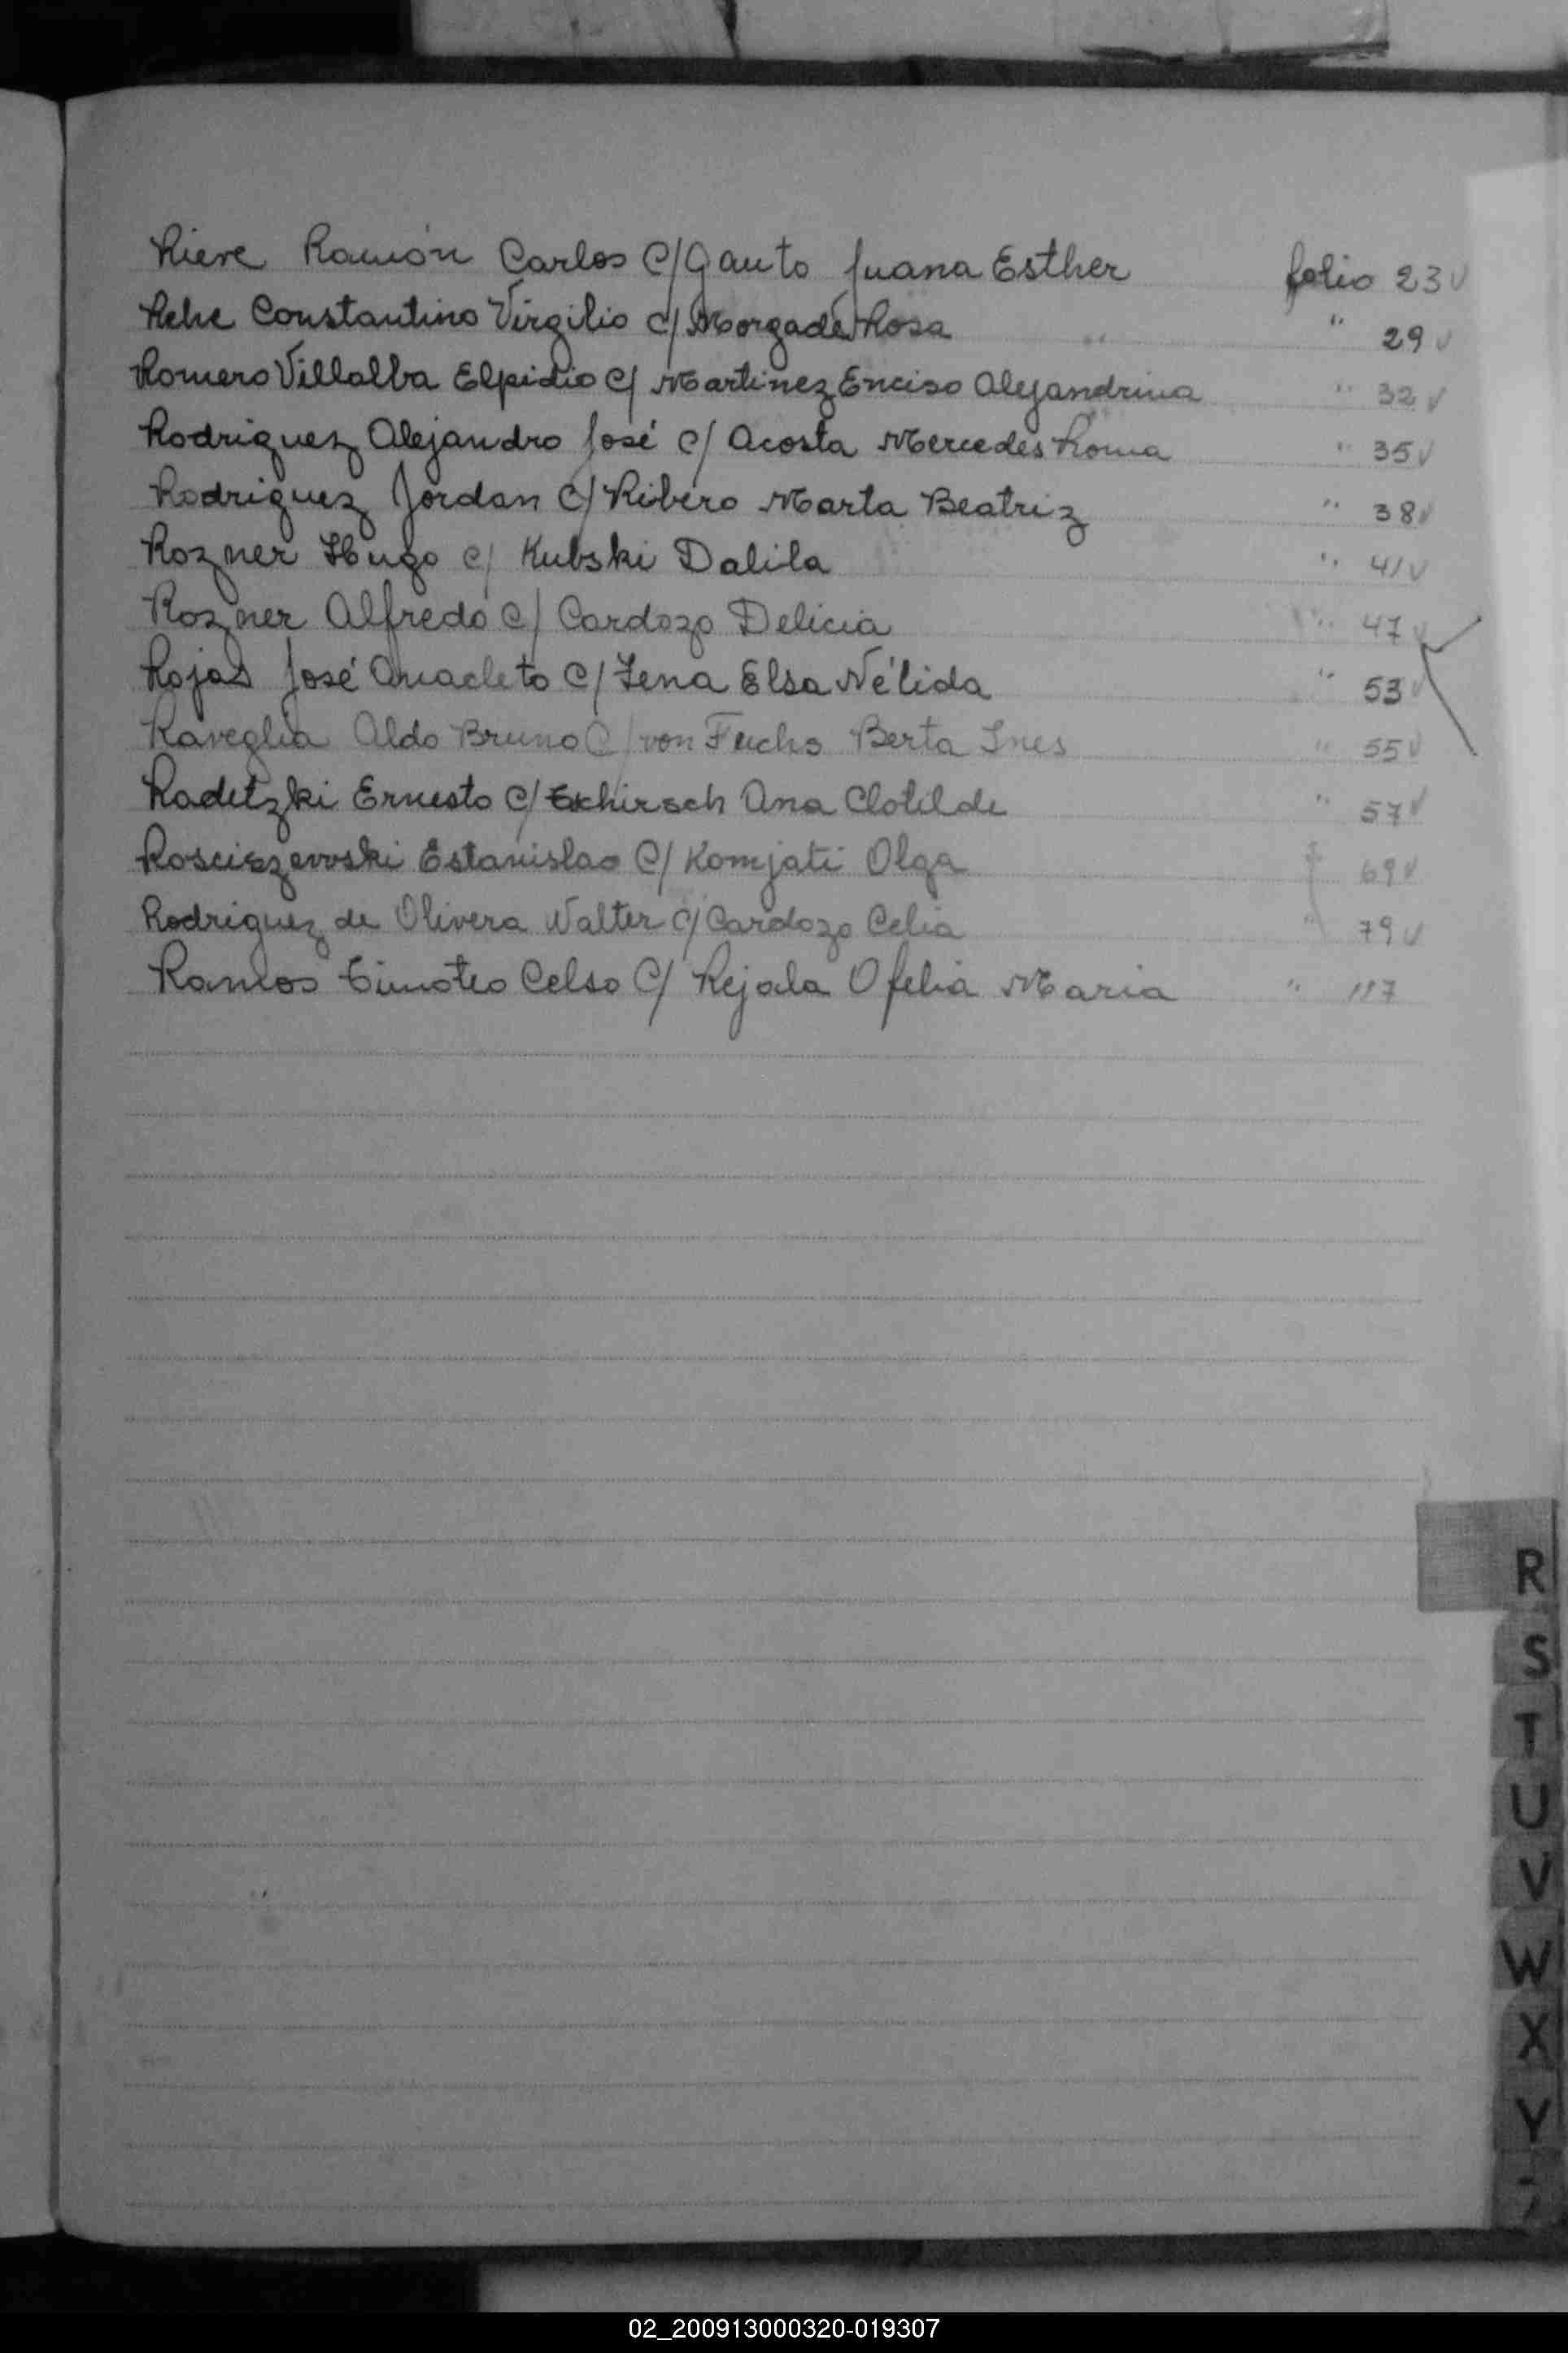 Rieve Ramón Carlos C/ Gauto Juana Esther folio 23 ✓
Rehe Constantino Virgilio c/ Morgade Rosa " 29 ✓
Romero Villalba Elpidio C/ Martinez Enciso Alejandrina " 32 ✓
Rodriguez Alejandro José C/ Acosta Mercedes Roma " 35 ✓
Rodriguez Jordan C/ Ribero Marta Beatriz " 38 ✓
Rozner Hugo c/ Kubski Dalila " 41 ✓
Rozner Alfredo C/ Cardozo Delicia " 47 ✓
Rojas José Anacleto C/ Zena Elsa Nélida " 53 ✓
Raveglia Aldo Bruno C/ von Fuchs Berta Ines " 55 ✓
Radetzki Ernesto C/ Ana Clotilde " 57 ✓
Rosciszewski Estanislao C/ Komjati Olga " 69 ✓
Rodriguez de Olivera Walter C/ Cardozo Celia " 79 ✓
Ramos Timoteo Celso C/ Rejala Ofelia Maria " 117
R
S
T
U
V
W
X
Y
Z
02_200913000320-019307